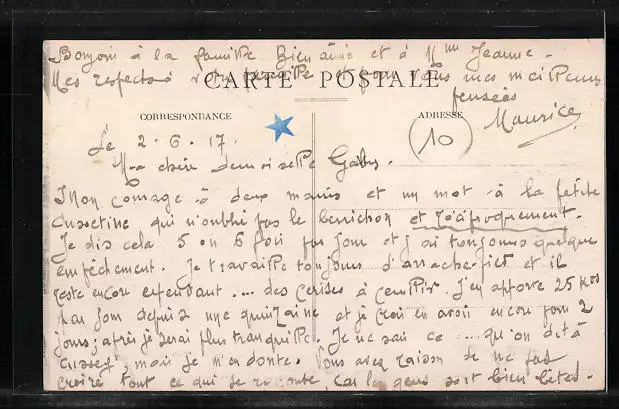 Bonjour à la famille Bien aimé et à Mme Jeanne -
Mes respects à votre famille et pour vous mes meilleures
CARTE POSTALE
pensées
CORRESPONDANCE
ADRESSE
Maurice
10
Le 2.6.17.
Ma chère demoiselle Gaby.
Mon courage à deux mains et un mot à la petite
qui n'oublie pas le berrichon et réciproquement.
Je dis cela 5 ou 6 fois par jour et j'ai toujours quelque
empêchement. Je travaille toujours d'arrache-pied et il
reste encore cependant .... des cerises à cueillir. J'en apporte 25 kos
par jour depuis une quinzaine et je crois en avoir encore pour 2
jours; après je serai plus tranquille. Je ne sais ce .... qu'on dit à
Cusset, mais je m'en doute. Vous avez raison de ne pas
croire tout ce qui se raconte, car les gens sont bien bêtes.